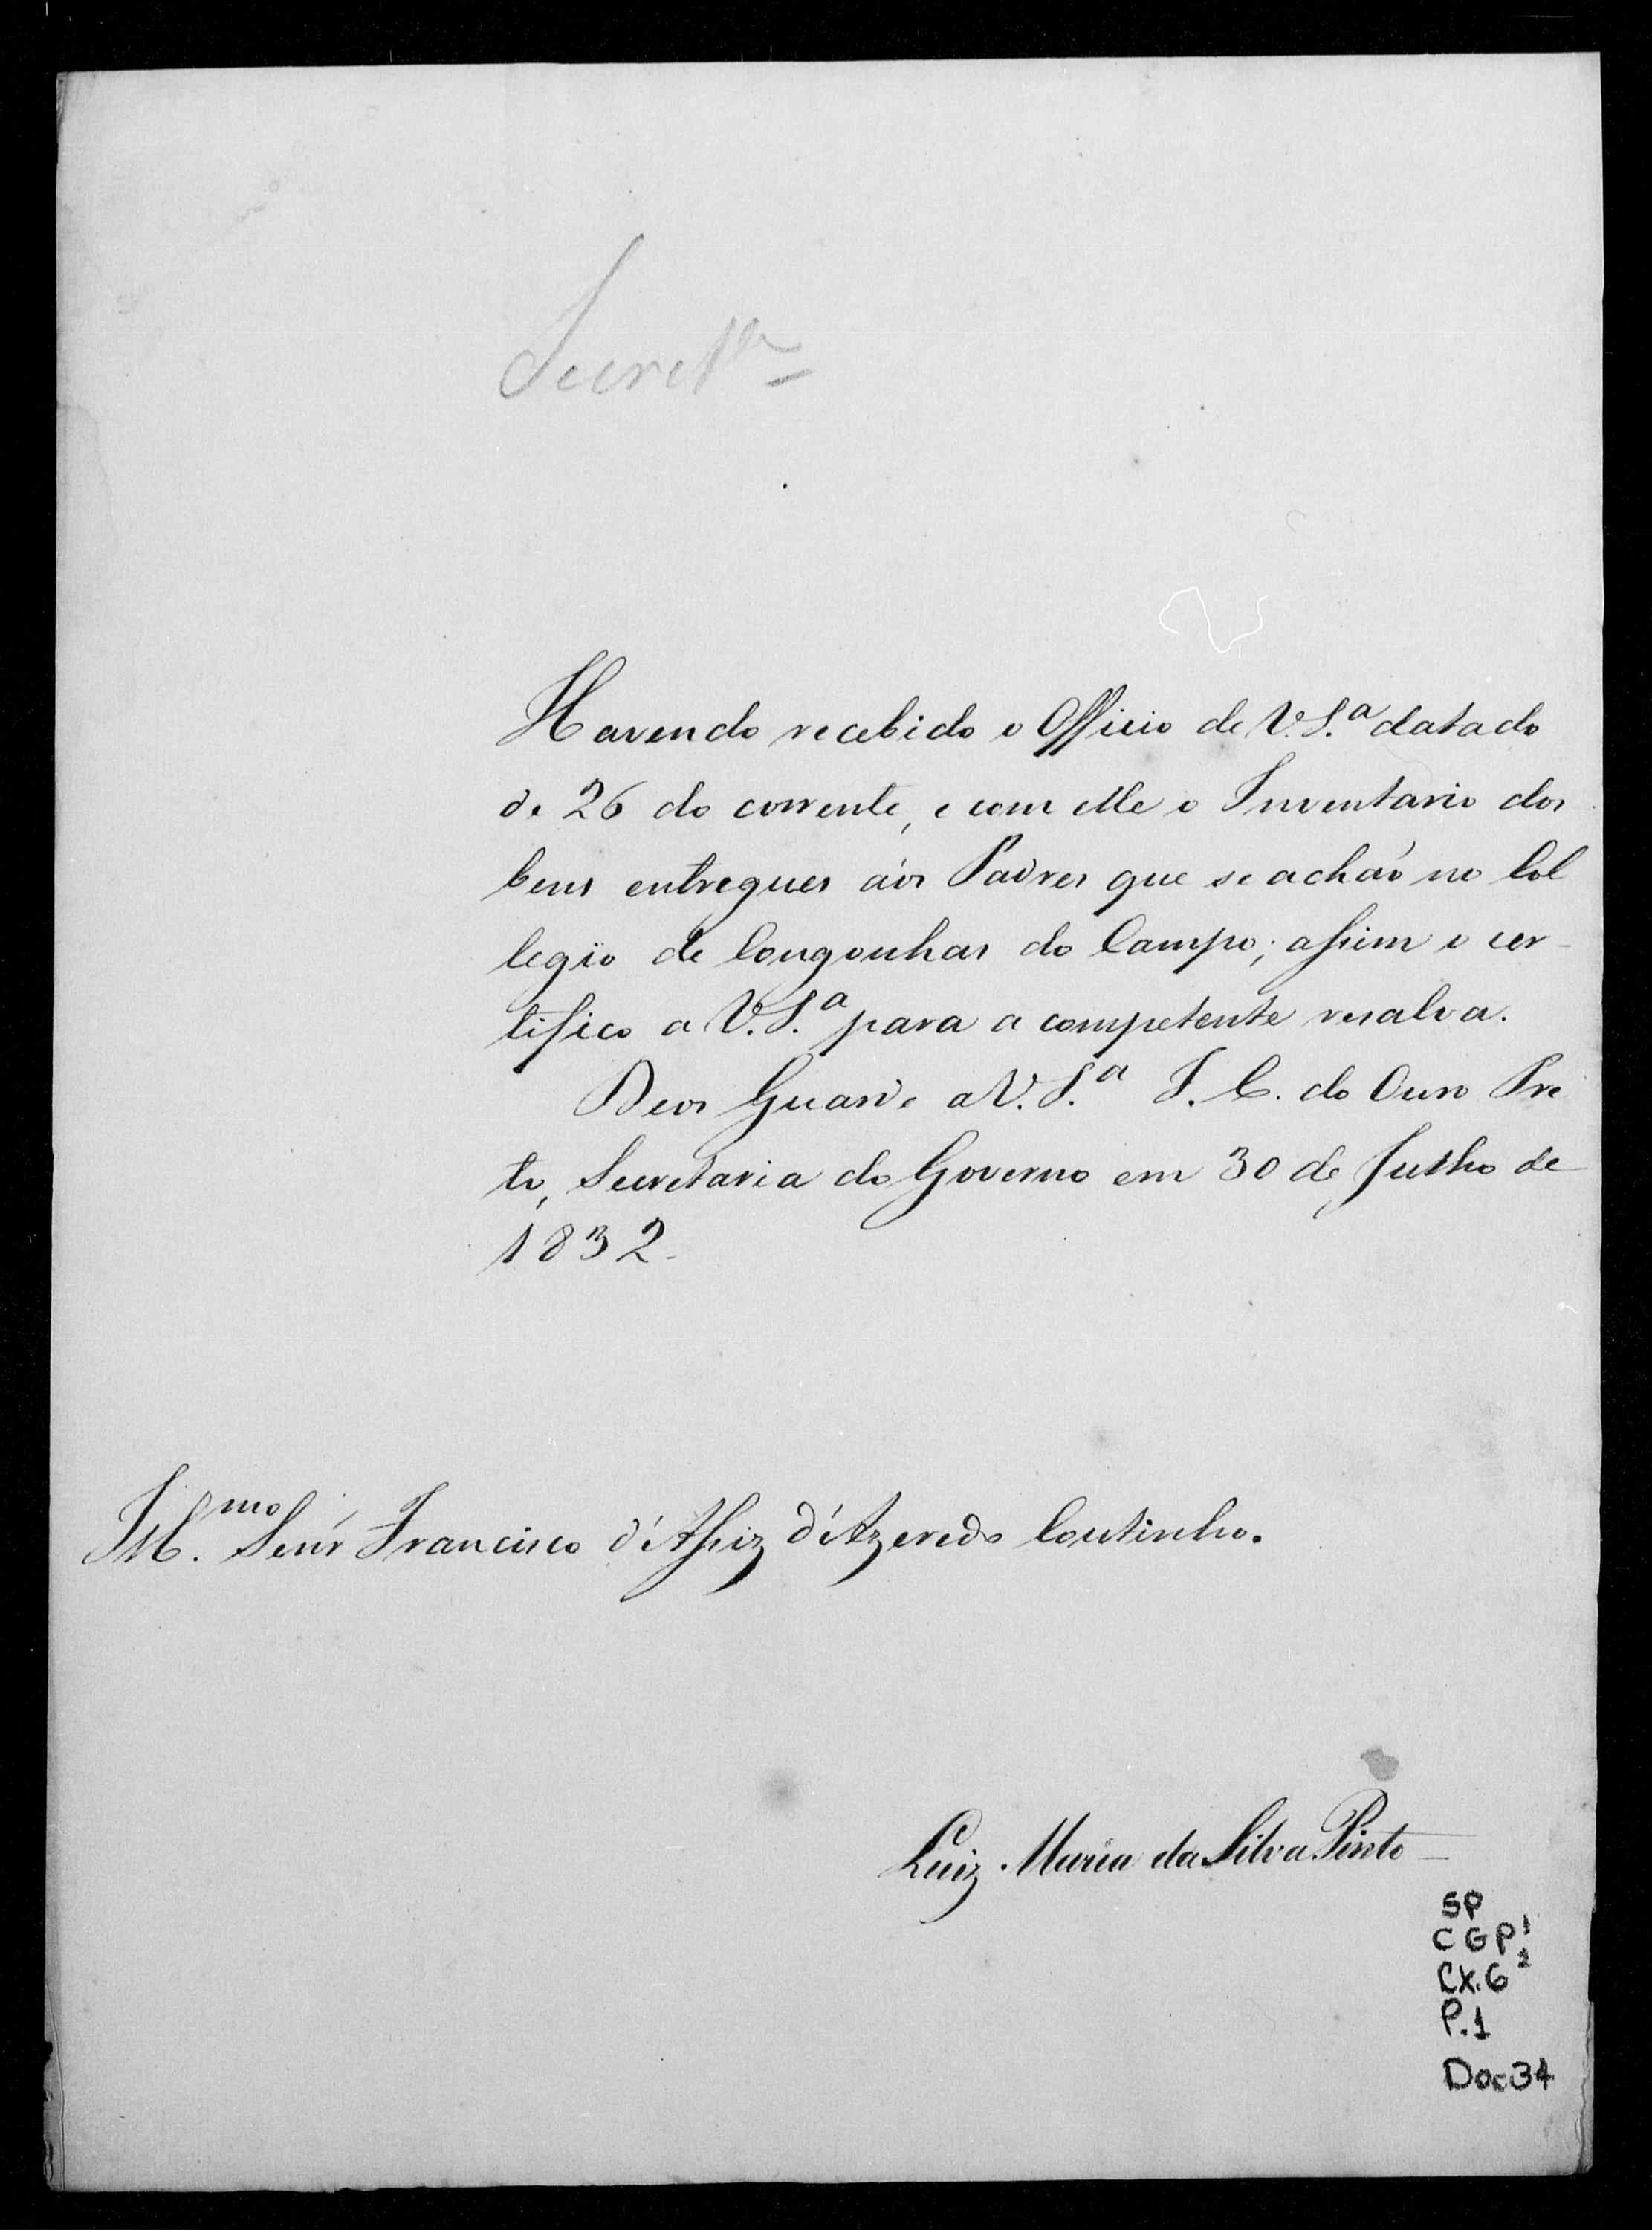 Secret.ª
Havendo recebido o Officio de V. S.ª datado
de 26 do corrente, e com elle o Inventario dos
bens entregues áos Padres que se achaõ no Col
legio de Congonhas do Campo; assim o cer-
tifico a V. S.ª para a competente resalva.
Deos Guarde a V. S.ª I. C. do Ouro Pre
to, Secretaria do Governo em 30 de Julho de
1832.
Ill.mo Senr Francisco d'Assiz d'Azeredo Coutinho.
Luiz Maria da Silva Pinto
SP
CGP¹
CX.6 2
P.1
Doc34